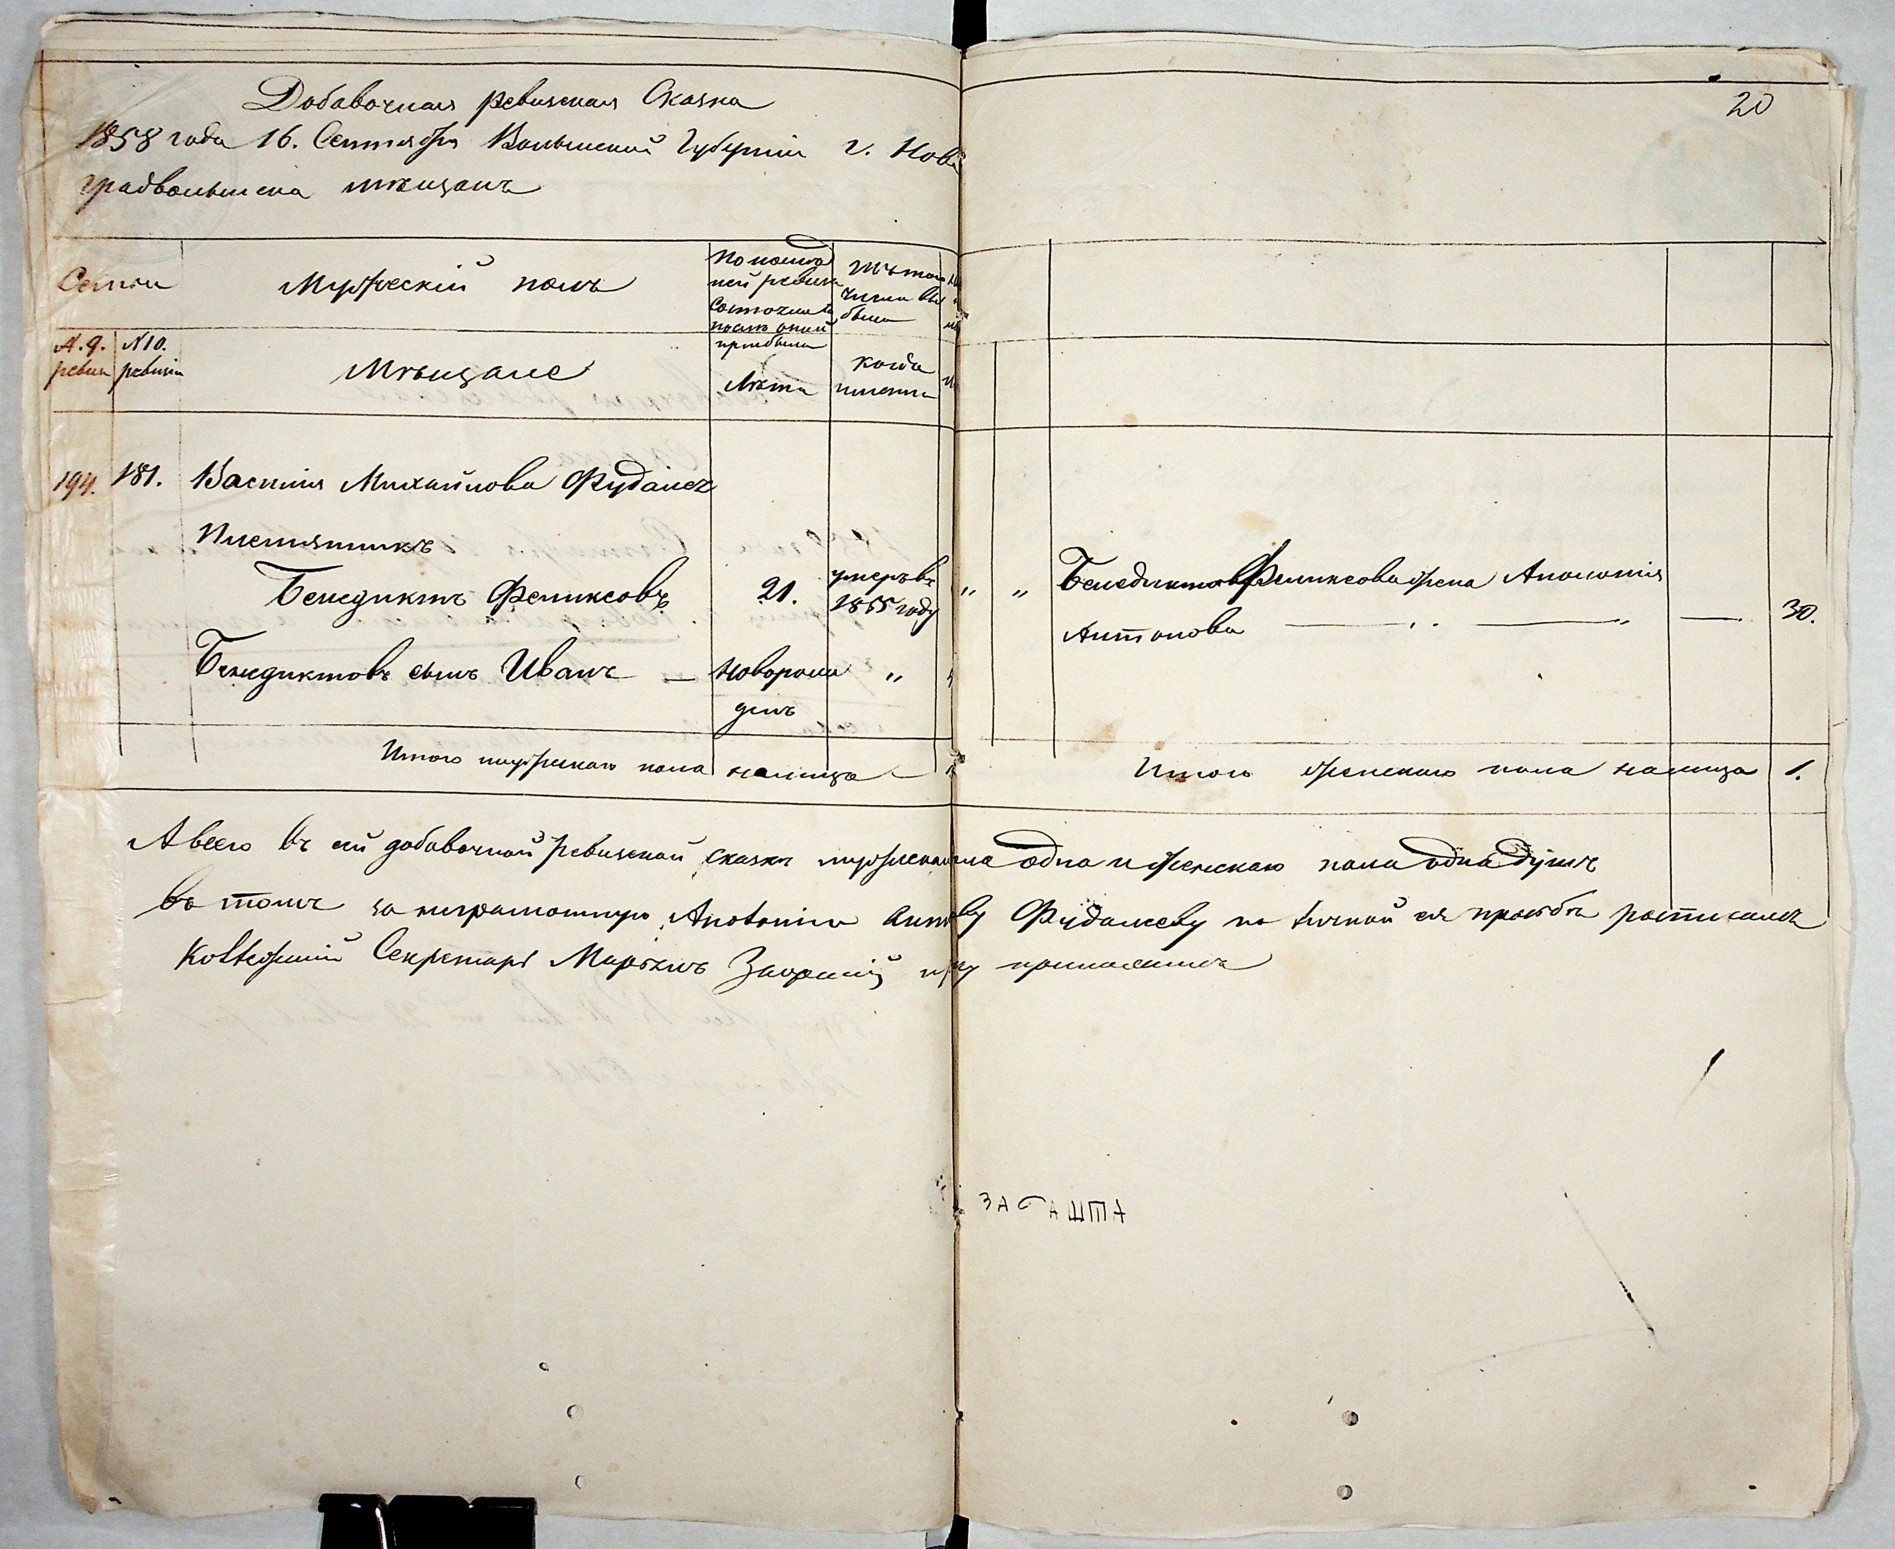 20
Добавочная ревизская Сказка
1858 года 16. Сентября Волынской Губернии г. Ново
градволынска мѣщанъ
Семьи
Мужескій полъ
По послѣд
ней ревизіи
состояло и
послѣ оной
прибыло
Изъ того
числа вы
было
№ 9. ревизи
№ 10. ревизіи
Мѣщане
Лѣта
когда
именно
194. 181. Василія Михайлова Фудалея
Племянникъ
Бенедиктъ Феликсовъ 21. умеръ въ 1855 году
" " Бенедиктова Феликсова жена Аполонія
Антонова — " — " — 30.
Бенедиктовъ сынъ Иванъ — новорож "
денъ
Итого мужескаго пола налицо — 1
Итого женскаго пола налицо 1.
А всего въ сей добавочной ревизской сказкѣ мужескаго одна и женскаго пола одна душъ
въ томъ за неграмотную Аполонию Антонову Фудалееву по личной ея прозьбѣ росписался
Коллежский Секретарь
ЗА АШТА